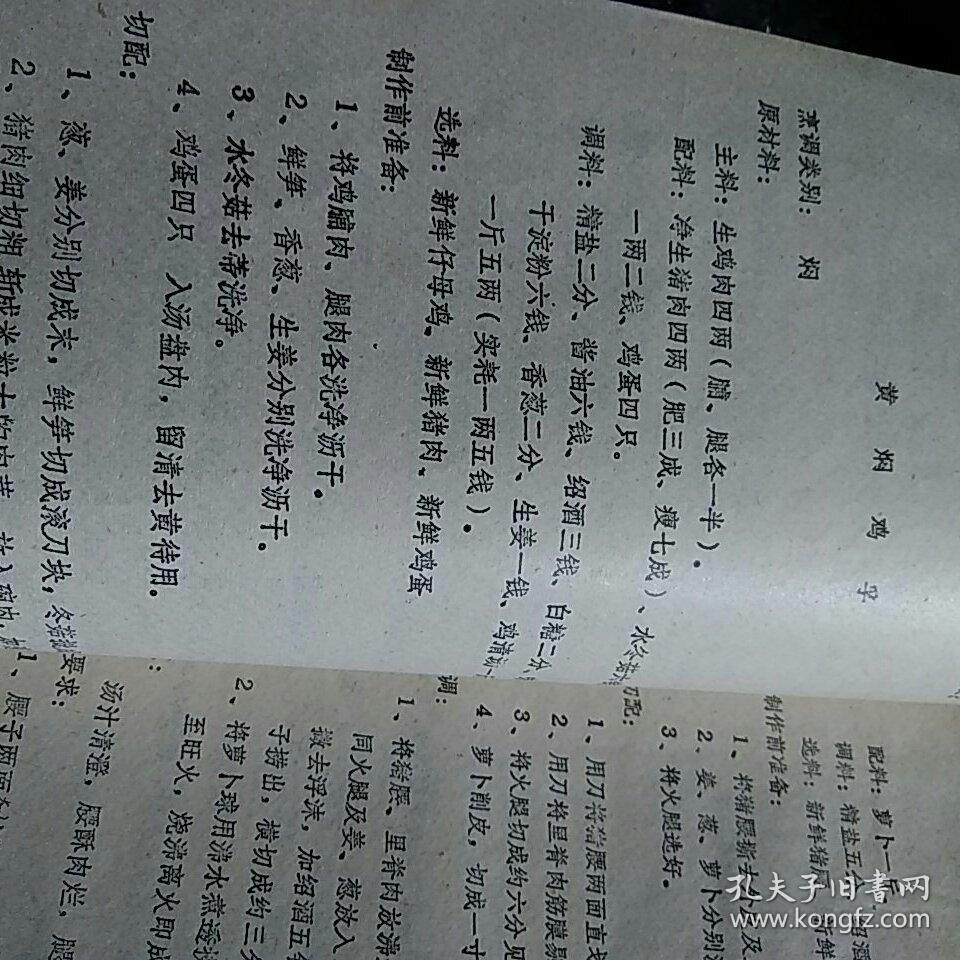 黄焖鸡孚
烹调类别：焖
原材料：
主料：生鸡肉四两（脯、腿各一半）。
配料：净生猪肉四两（肥三成、瘦七成）、水冬菇
一两二钱、鸡蛋四只。
调料：精盐二分、酱油六钱、绍酒三钱、白糖二分
干淀粉六钱、香葱二分、生姜一钱、鸡清汤
一斤五两（实耗一两五钱）。
选料：新鲜仔母鸡、新鲜猪肉、新鲜鸡蛋
制作前准备：
1、将鸡脯肉、腿肉各洗净沥干。
2、鲜笋、香葱、生姜分别洗净沥干。
3、水冬菇去蒂洗净。
4、鸡蛋四只 入汤盘内，留清去黄待用。
切配：
1、葱、姜分别切成末，鲜笋切成滚刀块，冬菇
2、猪肉细切粗斩成米粒大
配料：萝卜一
调料：精盐五分
选料：新鲜猪
制作前准备：
1、将猪腰撕去
2、姜、葱、萝卜分别
3、将火腿选好。
切配：
1、用刀将猪腰两面直
2、用刀将里脊肉筋膜
3、将火腿切成约六分见
4、萝卜削皮，切成一寸
调：
1、将猪腰、里脊肉放
同火腿及姜、葱放入
撇去浮沫，加绍酒五
子捞出，横切成约三
2、将萝卜球用沸水煮透
至旺火，烧沸离火即成
要求：
汤汁清澄，腰酥肉烂，腿
1、腰子两面
孔夫子旧书网
www.kongfz.com